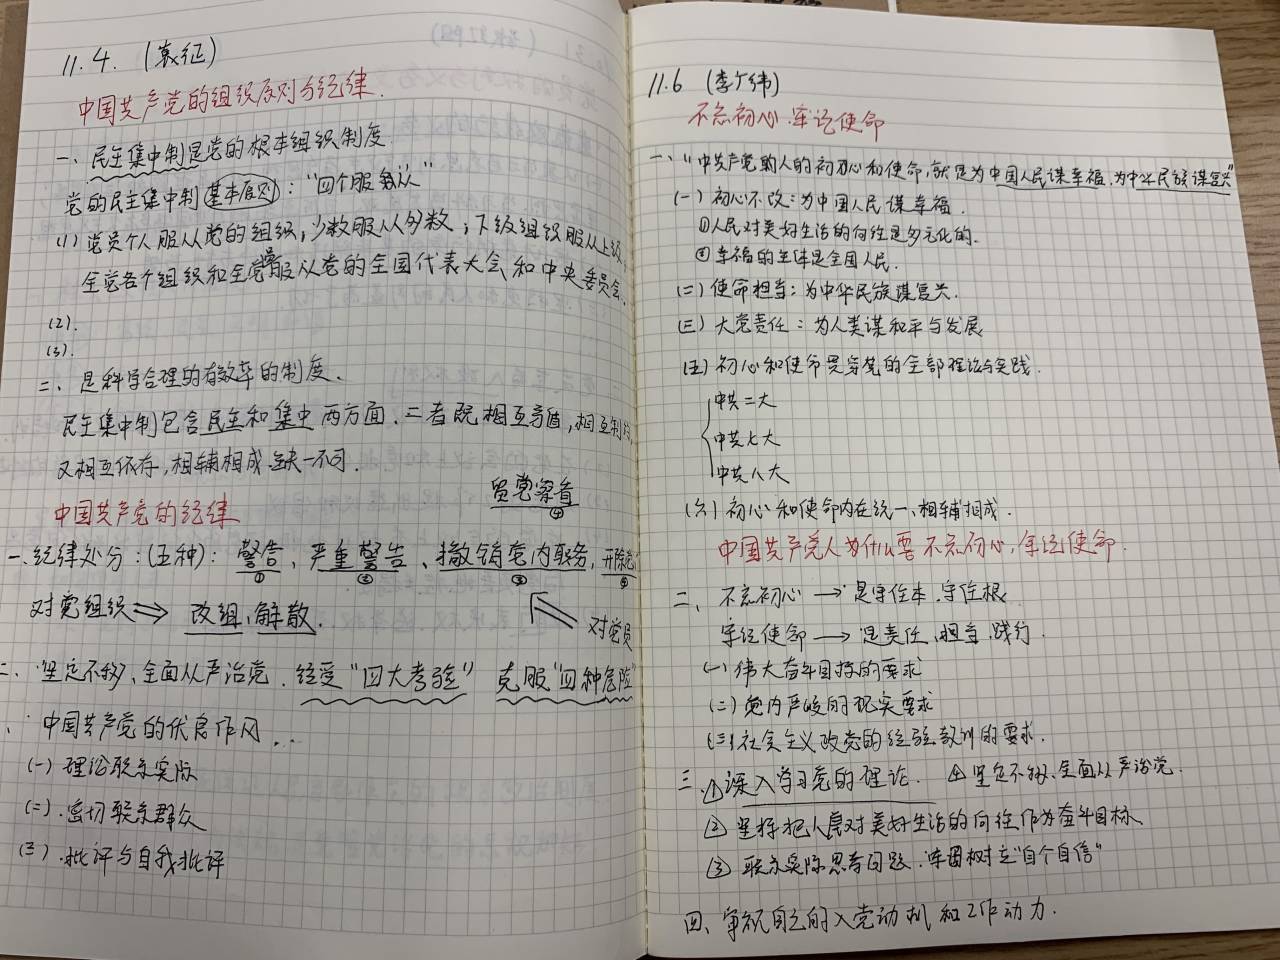 11.4. (袁征)
中国共产党的组织原则与纪律.
一、民主集中制是党的根本组织制度
党的民主集中制基本原则："四个服从"
(1) 党员个人服从党的组织，少数服从多数；下级组织服从上级，
全党各个组织和全党党员服从党的全国代表大会和中央委员会.
(2).
(3).
二、是科学合理的有效率的制度.
民主集中制包含民主和集中两方面.二者既相互矛盾，相互制约，
又相互依存，相辅相成.缺一不可.
中国共产党的纪律
留党察看
④
一、纪律处分：(五种)：警告、严重警告、撤销党内职务，开除党
① ② ③ ⑤
对党组织 ⇒ 改组、解散.
对党员
二、坚定不移、全面从严治党.经受"四大考验" 克服"四种危险"
中国共产党的优良作风...
(一) 理论联系实际
(二).密切联系群众
(三).批评与自我批评
11.6 (李广纬)
不忘初心.牢记使命
一、"中共产党的人的初心和使命，就是为中国人民谋幸福，为中华民族谋复兴"
(一) 初心不改：为中国人民谋幸福.
①人民对美好生活的向往是多元化的.
②幸福的主体是全国人民.
(二) 使命担当：为中华民族谋复兴.
(三) 大党责任：为人类谋和平与发展
(五) 初心和使命贯穿党的全部理论与实践.
中共二大
中共七大
中共八大
(六) 初心和使命内在统一、相辅相成.
中国共产党人为什么要不忘初心，牢记使命.
二、不忘初心 → 是守住本.守住根
牢记使命 → 是责任、担当、践行.
(一) 伟大奋斗目标的要求
(二) 党内严峻的现实要求
(三) 社会主义政党的经验教训的要求.
三.①深入学习党的理论. ④坚定不移、全面从严治党.
②坚持把人民对美好生活的向往作为奋斗目标
③联系实际思考问题.牢固树立"四个自信"
四、审视自己的入党动机和工作动力.